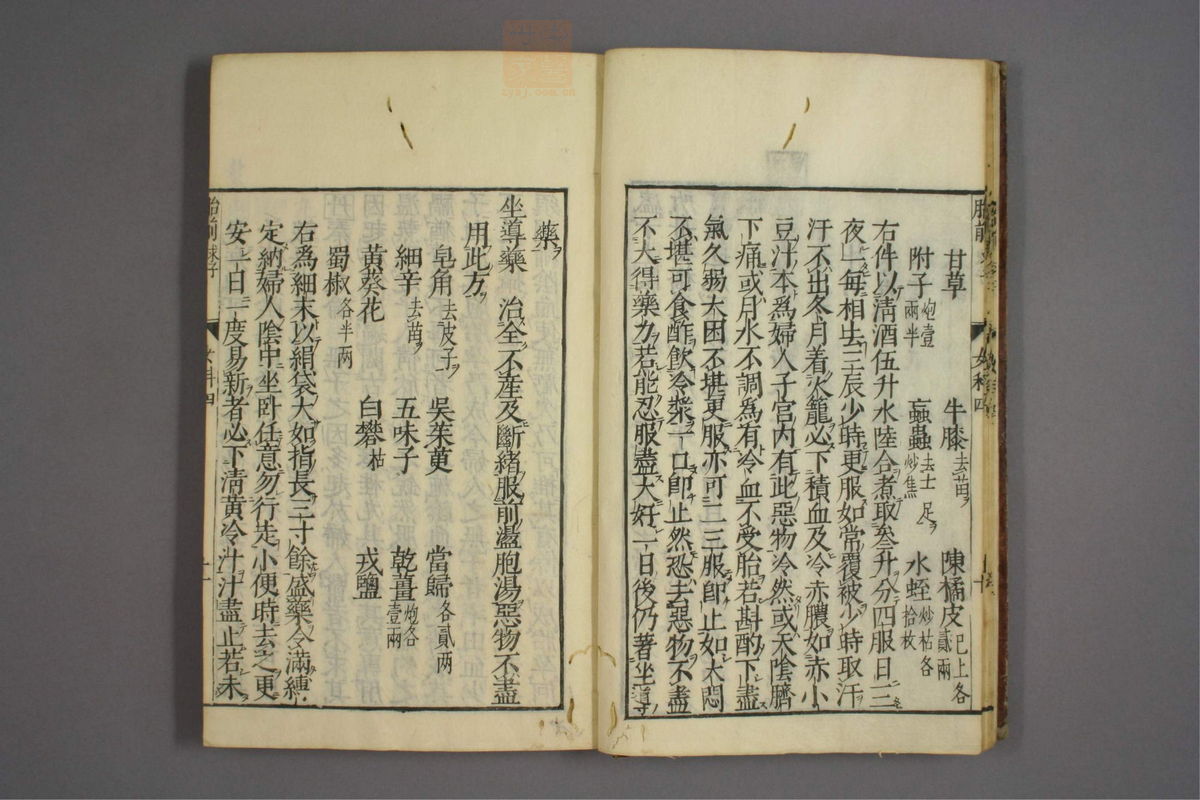 甘草 牛膝去苗 陳橘皮已上各貳兩
附子炮壹兩半 䗪蟲去土足炒焦 水蛭炒枯各拾枚
右件以清酒伍升水陸合煮取叁升分四服日三
夜一每相去三辰少時更服如常覆被少時取汗
汗不出冬月着火籠必下積血及冷赤膿如赤小
豆汁本為婦人子宮內有此惡物冷然或天陰臍
下痛或月水不調為有冷血不受胎若斟酌下盡
氣久弱大困不堪更服亦可二三服即止如大悶
不堪可食酢飲冷漿一口即止然恐去惡物不盡
不大得藥力若能忍服盡大好一日後仍著坐導
藥
坐導藥 治全不產及斷緒服前盪胞湯惡物不盡
用此方
皂角去皮子 吳茱萸 當歸各貳兩
細辛去苗 五味子 乾薑炮各壹兩
黃葵花 白礬枯 戎鹽
蜀椒各半兩
右為細末以絹袋大如指長三寸餘盛藥令滿縛
定納婦人陰中坐卧任意勿行走小便時去之更
安一日一度易新者必下清黃冷汁汁盡止若未
胎前求子 女科四 十一